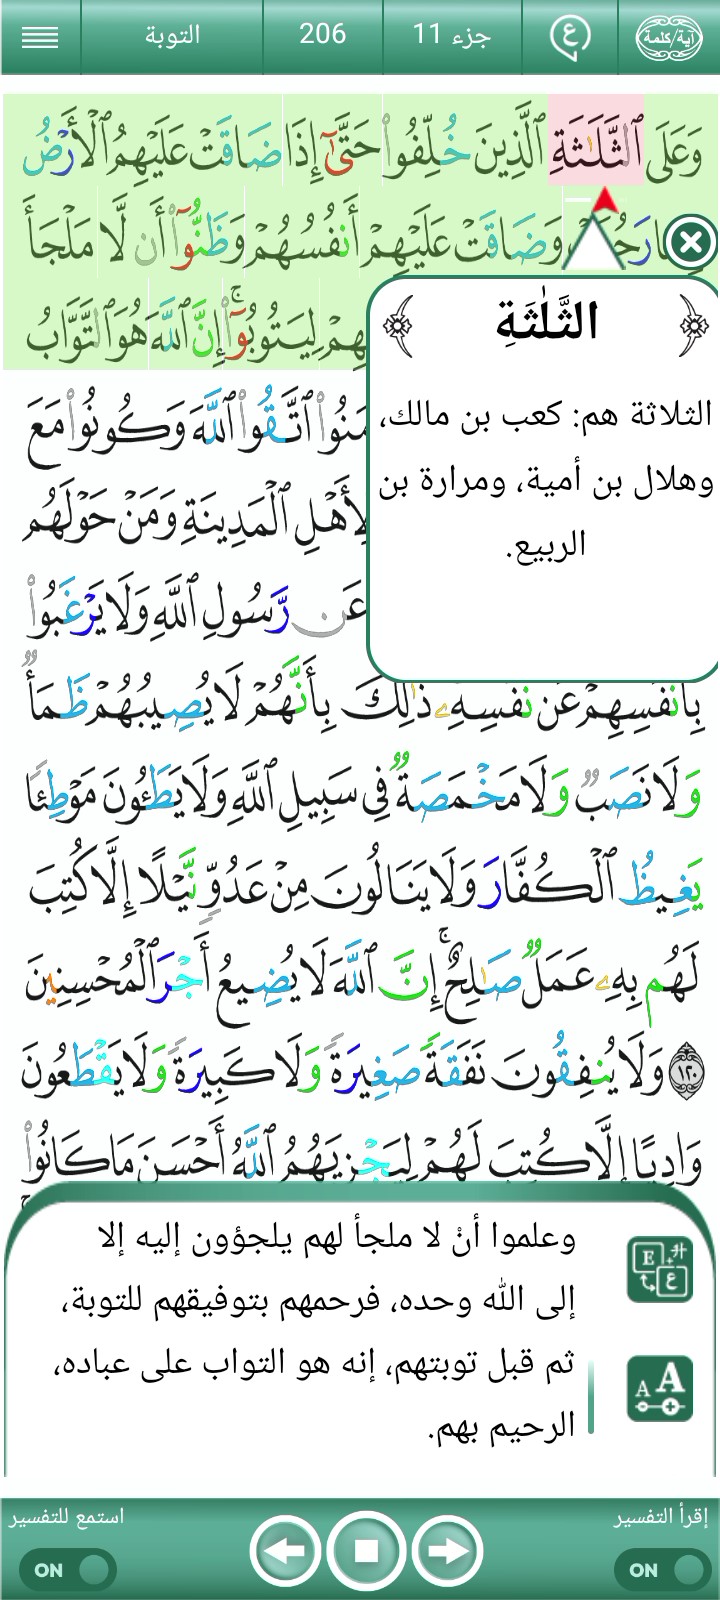 آية/كلمة
ع
جزء 11
206
التوبة
وَعَلَى ٱلثَّلَـٰثَةِ ٱلَّذِينَ خُلِّفُوا۟ حَتَّىٰٓ إِذَا ضَاقَتْ عَلَيْهِمُ ٱلْأَرْضُ
رَحُ وَضَاقَتْ عَلَيْهِمْ أَنفُسُهُمْ وَظَنُّوٓا۟ أَن لَّا مَلْجَأَ
لِيَتُوبُوٓا۟ ۚ إِنَّ ٱللَّهَ هُوَ ٱلتَّوَّابُ
ٱتَّقُوا۟ ٱللَّهَ وَكُونُوا۟ مَعَ
لِأَهْلِ ٱلْمَدِينَةِ وَمَنْ حَوْلَهُم
عَن رَّسُولِ ٱللَّهِ وَلَا يَرْغَبُوا۟
بِأَنفُسِهِمْ عَن نَّفْسِهِۦ ذَٰلِكَ بِأَنَّهُمْ لَا يُصِيبُهُمْ ظَمَأٌ
وَلَا نَصَبٌ وَلَا مَخْمَصَةٌ فِى سَبِيلِ ٱللَّهِ وَلَا يَطَـُٔونَ مَوْطِئًا
يَغِيظُ ٱلْكُفَّارَ وَلَا يَنَالُونَ مِنْ عَدُوٍّ نَّيْلًا إِلَّا كُتِبَ
لَهُم بِهِۦ عَمَلٌ صَـٰلِحٌ ۚ إِنَّ ٱللَّهَ لَا يُضِيعُ أَجْرَ ٱلْمُحْسِنِينَ
١٢٠ وَلَا يُنفِقُونَ نَفَقَةً صَغِيرَةً وَلَا كَبِيرَةً وَلَا يَقْطَعُونَ
وَادِيًا إِلَّا كُتِبَ لَهُمْ لِيَجْزِيَهُمُ ٱللَّهُ أَحْسَنَ مَا كَانُوا۟
الثَّلَٰثَةِ
الثلاثة هم: كعب بن مالك،
وهلال بن أمية، ومرارة بن
الربيع.
وعلموا أنْ لا ملجأ لهم يلجؤون إليه إلا
إلى الله وحده، فرحمهم بتوفيقهم للتوبة،
ثم قبل توبتهم، إنه هو التواب على عباده،
الرحيم بهم.
إقرأ التفسير
ON
استمع للتفسير
ON